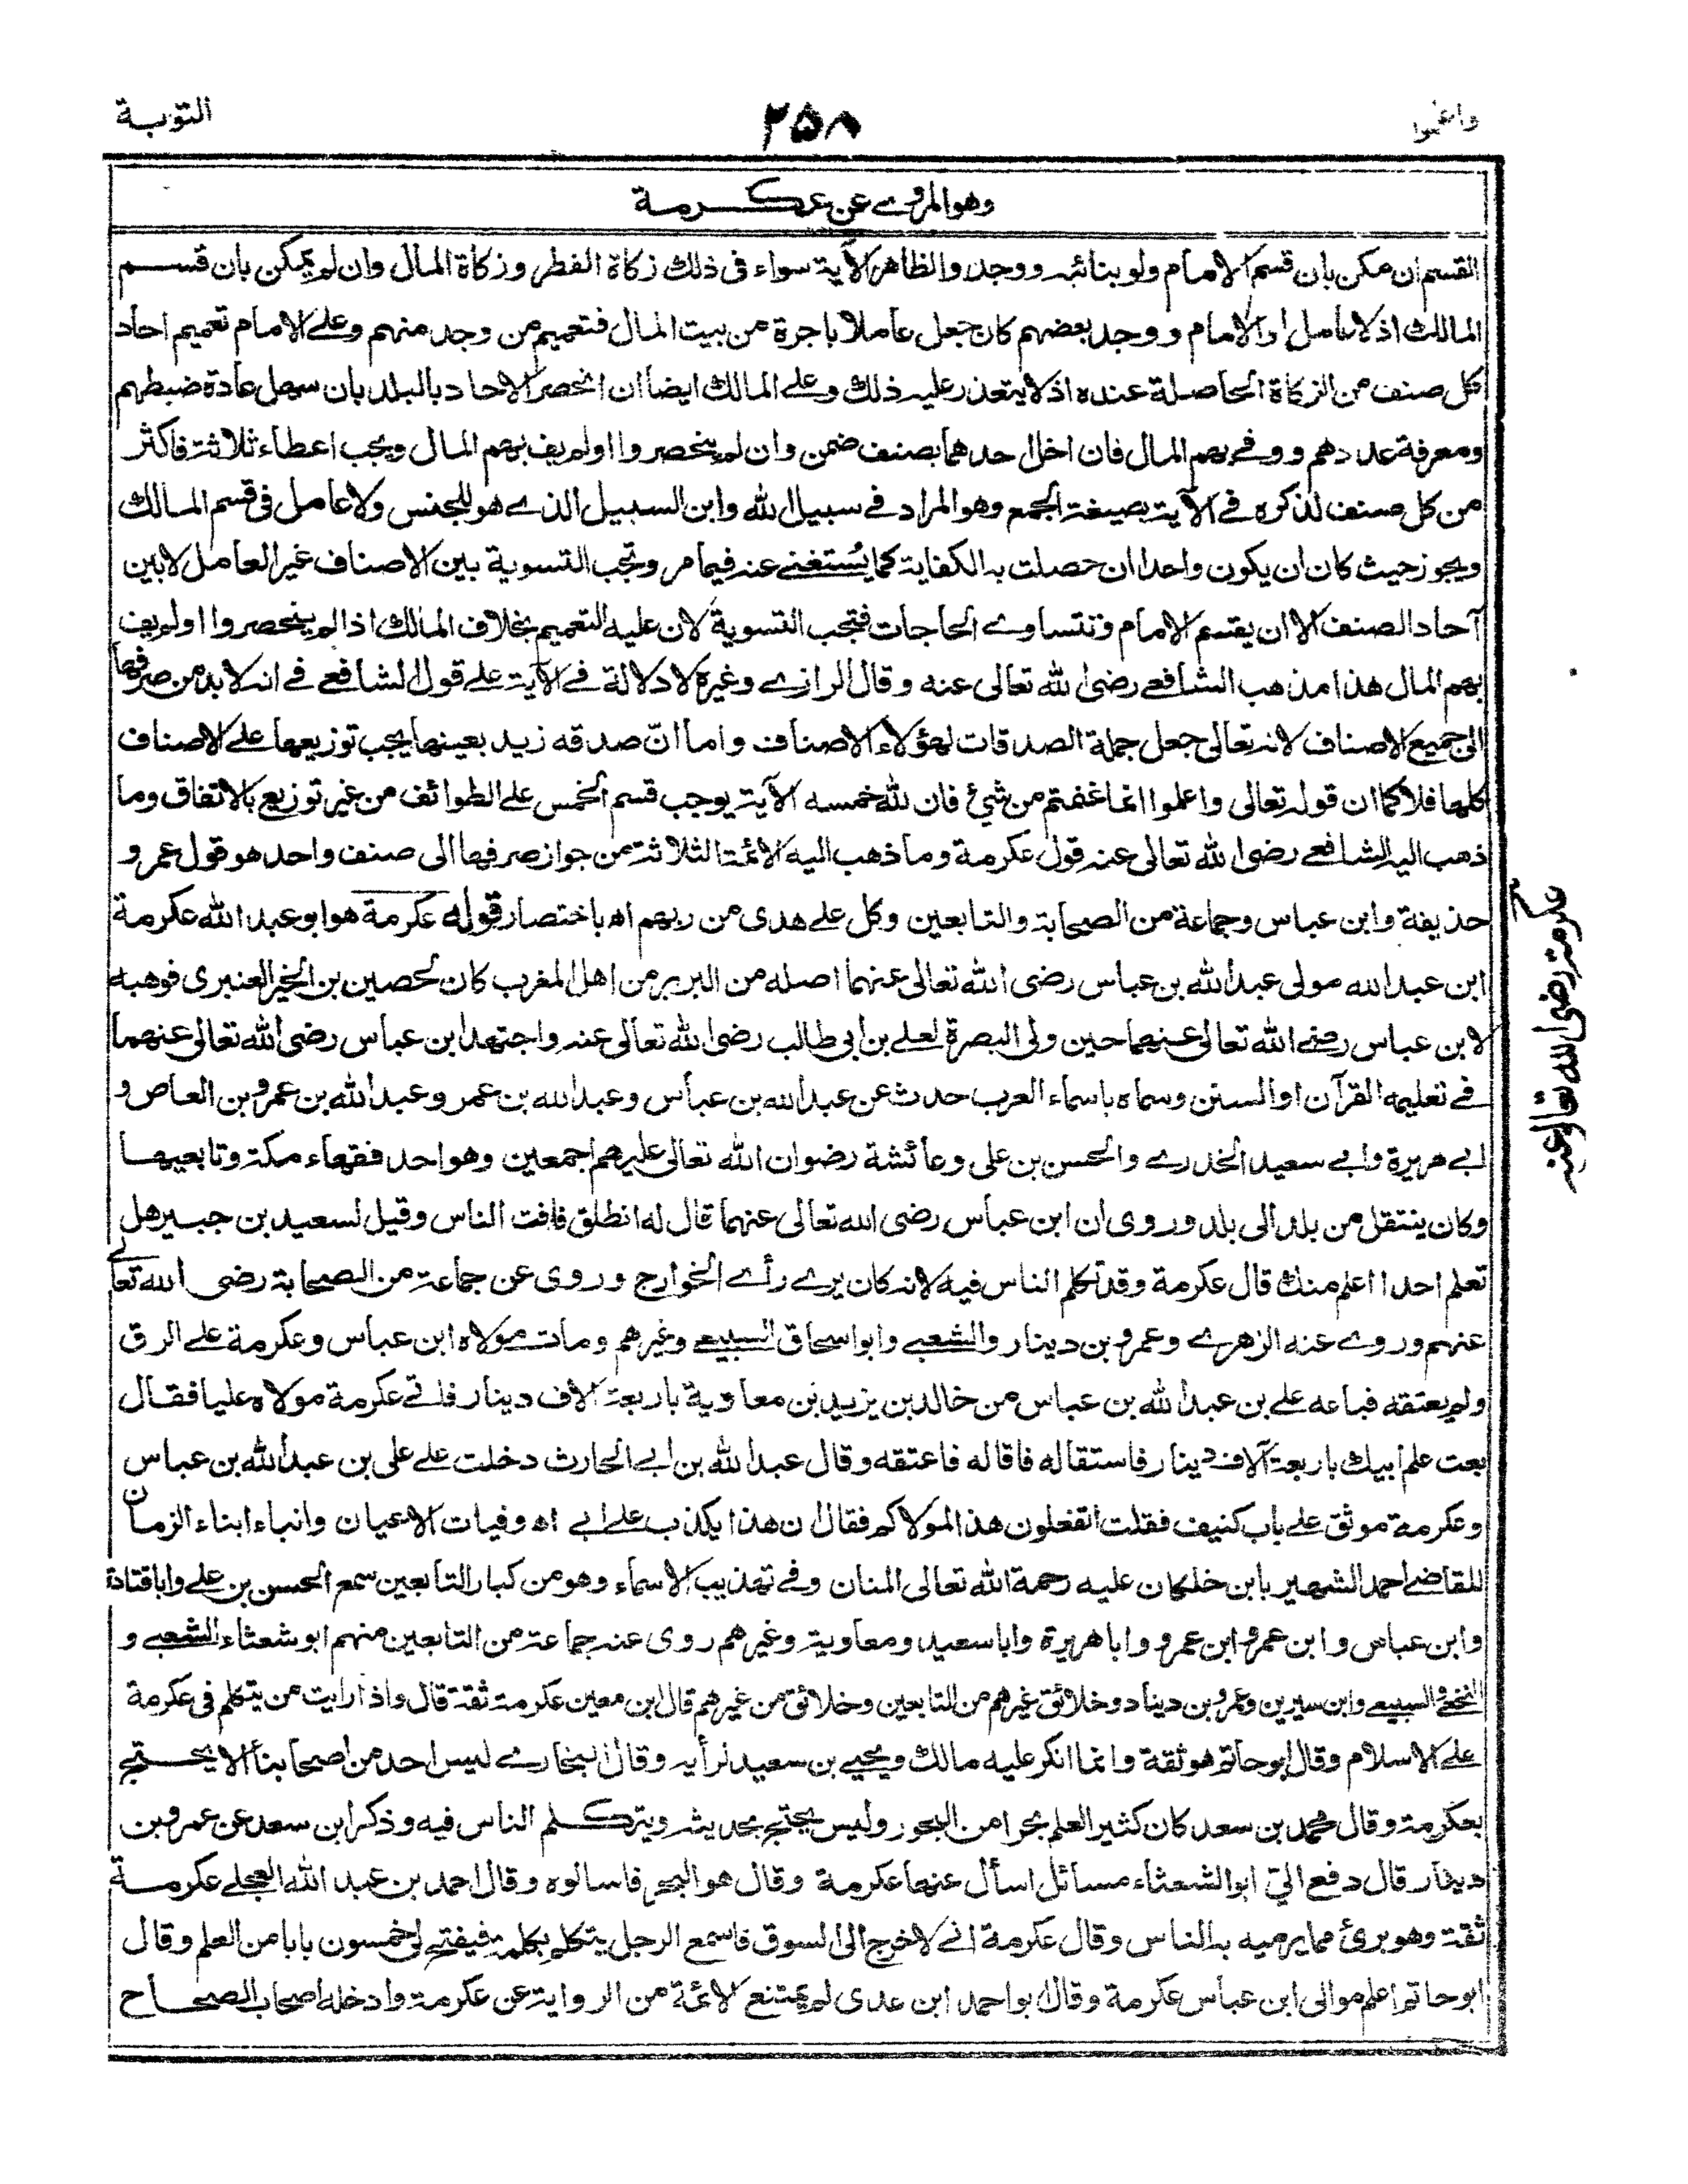 واعلموا
٢٥٨
التوبة
وهو المروے عن عكرمة
القسم ان مكن بان قسم الامام ولو بنائبه ووجد والظاهر الآية سواء فى ذلك زكاة الفطر وزكاة المال وان لم يمكن بان قسم
المالك اذ لا عامل او الامام ووجد بعضهم كان جعل عاملا باجرة من بيت المال فتعميم من وجد منهم وعلے الامام تعميم احاد
كل صنف من الزكاة الحاصلة عنده اذ لا يتعذر عليه ذلك وعلے المالك ايضا ان انحصر الاحاد بالبلد بان سهل عادة ضبطهم
ومعرفة عددهم ووفے بهم المال فان اخل احدهما بصنف ضمن وان لم ينحصروا اولم يف بهم المال ويجب اعطاء ثلاثة فاكثر
من كل صنف لذكره فے الآية بصيغة الجمع وهو المراد فے سبيل الله وابن السبيل الذے هو للجنس ولا عامل فى قسم المالك
ويجوز حيث كان ان يكون واحدا ان حصلت به الكفاية كما يُستغنے عنه فيما مر وتجب التسوية بين الاصناف غير العامل لا بين
آحاد الصنف الا ان يقسم الامام وتتساوے الحاجات فتجب التسوية لان عليه التعميم بخلاف المالك اذا لم ينحصروا اولم يف
بهم المال هذا مذهب الشافعے رضى الله تعالى عنه وقال الرازے وغيره لا دلالة فے الآية علے قول الشافعے فے انه لا بد من صرفها
الى جميع الاصناف لانه تعالى جعل جملة الصدقات لهؤلاء الاصناف واما انّ صدقه زيد بعينها يجب توزيعها علے الاصناف
كلها فلا كما ان قوله تعالى واعلموا انما غنمتم من شئ فان لله خمسه الآية يوجب قسم الخمس علے الطوائف من غير توزيع بالاتفاق وما
ذهب اليه الشافعے رضى الله تعالى عنه قول عكرمة وما ذهب اليه الائمة الثلاثة من جواز صرفها الى صنف واحد هو قول عمر و
حذيفة وابن عباس وجماعة من الصحابة والتابعين وكل علے هدى من ربهم اه باختصار قوله عكرمة هو ابو عبد الله عكرمة
ابن عبد الله مولى عبد الله بن عباس رضى الله تعالى عنهما اصله من البربر من اهل المغرب كان لحصين بن الخير العنبرى فوهبه
لابن عباس رضے الله تعالى عنهما حين ولى البصرة لعلے بن ابى طالب رضى الله تعالى عنه واجتهد ابن عباس رضى الله تعالى عنهما
فے تعليمه القرآن او السنن وسماه باسماء العرب حدث عن عبد الله بن عباس وعبد الله بن عمر وعبد الله بن عمرو بن العاص و
ابے هريرة وابے سعيد الخدرے والحسن بن على وعائشة رضوان الله تعالى عليهم اجمعين وهو احد فقهاء مكة وتابعيها
وكان ينتقل من بلد الى بلد وروى ان ابن عباس رضى الله تعالى عنهما قال له انطلق فافت الناس وقيل لسعيد بن جبير هل
تعلم احدا اعلم منك قال عكرمة وقد تكلم الناس فيه لانه كان يرے رأے الخوارج وروى عن جماعة من الصحابة رضى الله تعالے
عنهم وروے عنه الزهرے وعمرو بن دينار والشعبے وابو اسحاق السبيعے وغيرهم ومات مولاه ابن عباس وعكرمة علے الرق
ولم يعتقه فباعه علے بن عبد الله بن عباس من خالد بن يزيد بن معاوية باربعة الاف دينار فاتے عكرمة مولاه عليا فقال
بعت علم ابيك باربعة آلاف دينار فاستقاله فاقاله فاعتقه وقال عبد الله بن ابے الحارث دخلت علے على بن عبد الله بن عباس
وعكرمة موثق علے باب كنيف فقلت اتفعلون هذا لمولاكم فقال ان هذا يكذب علے ابے اه وفيات الاعيان وانباء ابناء الزمان
للقاضے احمد الشهير بابن خلكان عليه رحمة الله تعالى المنان وفے تهذيب الاسماء وهو من كبار التابعين سمع الحسن بن علے وابا قتادة
وابن عباس وابن عمر وابن عمرو وابا هريرة وابا سعيد ومعاوية وغيرهم روى عنه جماعة من التابعين منهم ابو شعثاء الشعبے و
النخعے والسبيعے وابن سيرين وعمرو بن دينار وخلائق غيرهم من التابعين وخلائق من غيرهم قال ابن معين عكرمة ثقة قال واذا رايت من يتكلم فى عكرمة
علے الاسلام وقال ابو حاتم هو ثقة وانما انكر عليه مالك ويحيے بن سعيد لرأيه وقال البخارے ليس احد من اصحابنا الا يحتج
بعكرمة وقال محمد بن سعد كان كثير العلم بحرا من البحور وليس يحتج بحديثه ويتكلم الناس فيه وذكر ابن سعد عن عمرو بن
دينار قال دفع الىّ ابو الشعثاء مسائل اسأل عنها عكرمة وقال هو البحر فاسالوه وقال احمد بن عبد الله العجلے عكرمة
ثقة وهو برئ مما يرميه به الناس وقال عكرمة انے لاخرج الى السوق فاسمع الرجل يتكلم بكلمة فيفتح لى خمسون بابا من العلم وقال
ابو حاتم اعلم موالى ابن عباس عكرمة وقال ابو احمد ابن عدى لم يمتنع الائمة من الرواية عن عكرمة وادخله اصحاب الصحاح
عكرمة رضى الله تعالى عنه